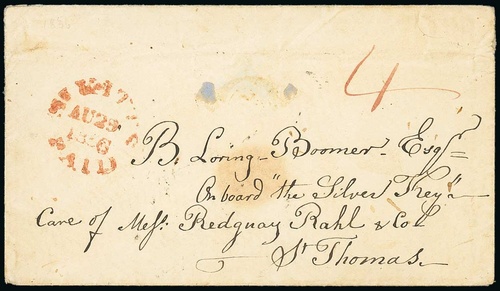 ST KITTS
AU 23
1856
PAID
4
B. Loring-Boomer-Esqr
On board "the Silver Key"
Care of Messr. Redguay Rahl & Co
St Thomas